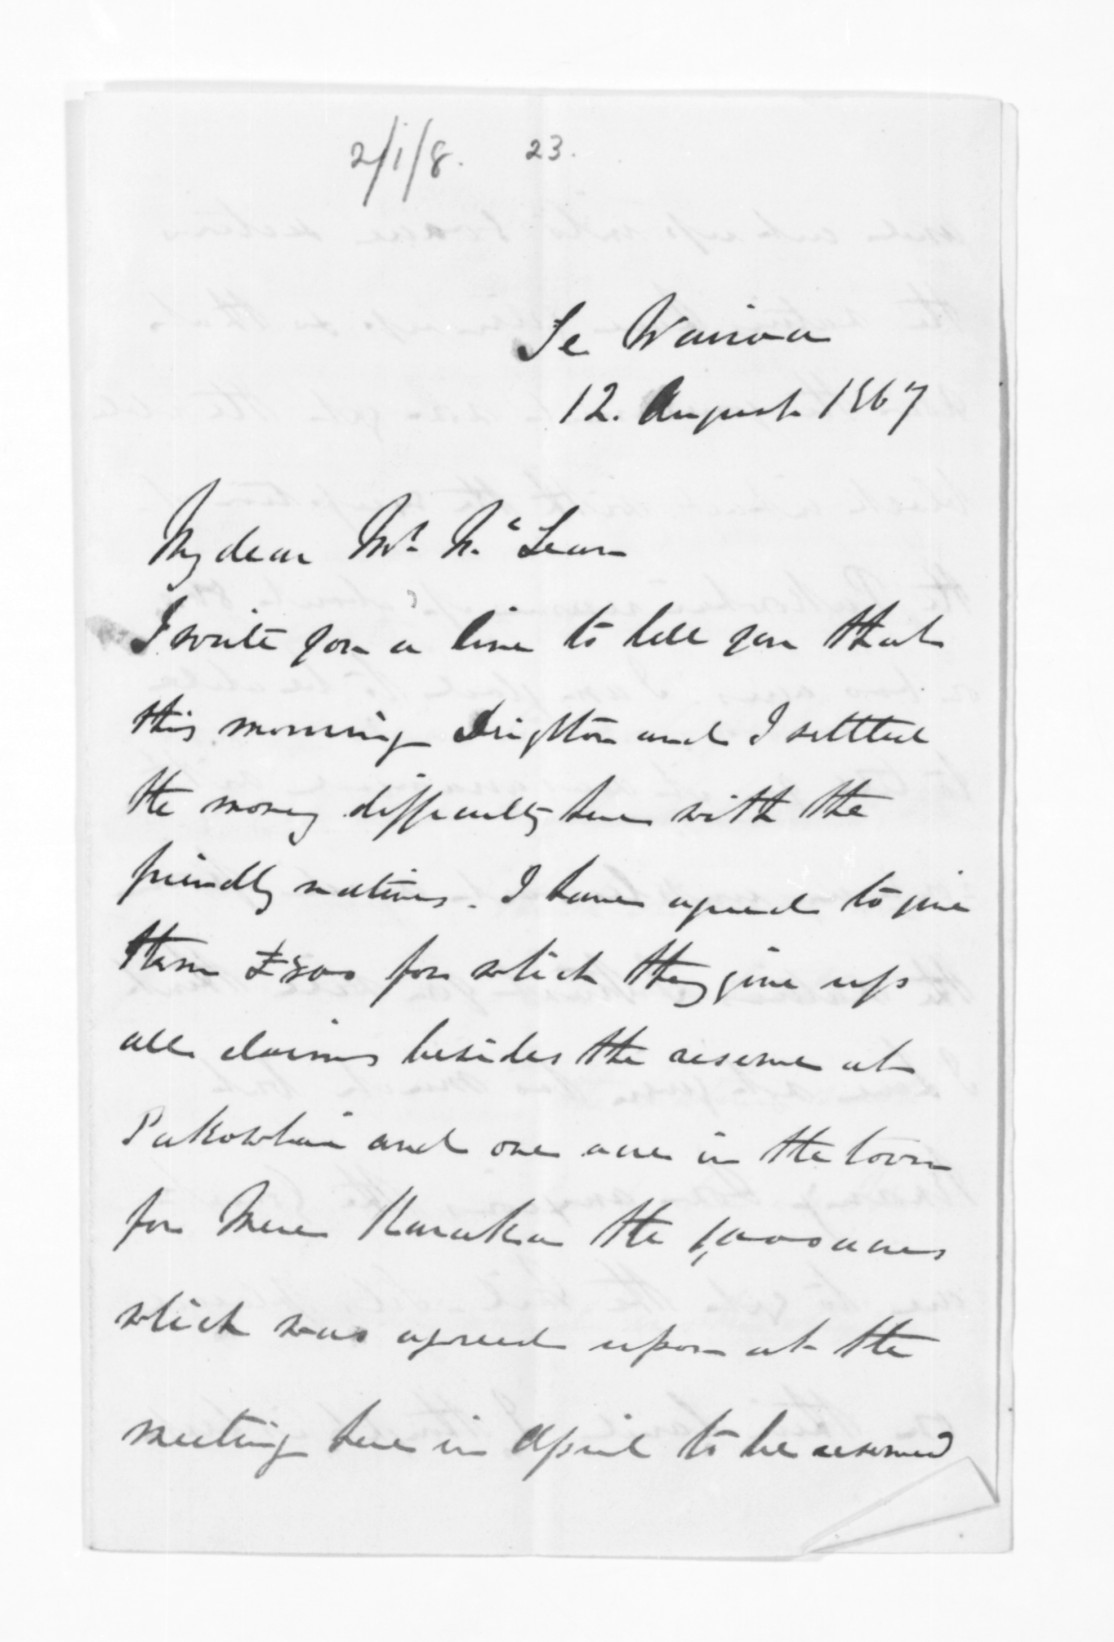 2/1/8. 23.
Te Wairoa
12. August 1867
My dear Mr. McLean
I write you a line to tell you that
this morning Deighton and I settled
the money difficulty here with the
friendly natives. I have agreed to give
them £800 for which they give up
all claims besides the reserve at
Pakowhai and one acre in the town
for Mere Karaka the 1,000 acres
which was agreed upon at the
meeting here in April to be reserved